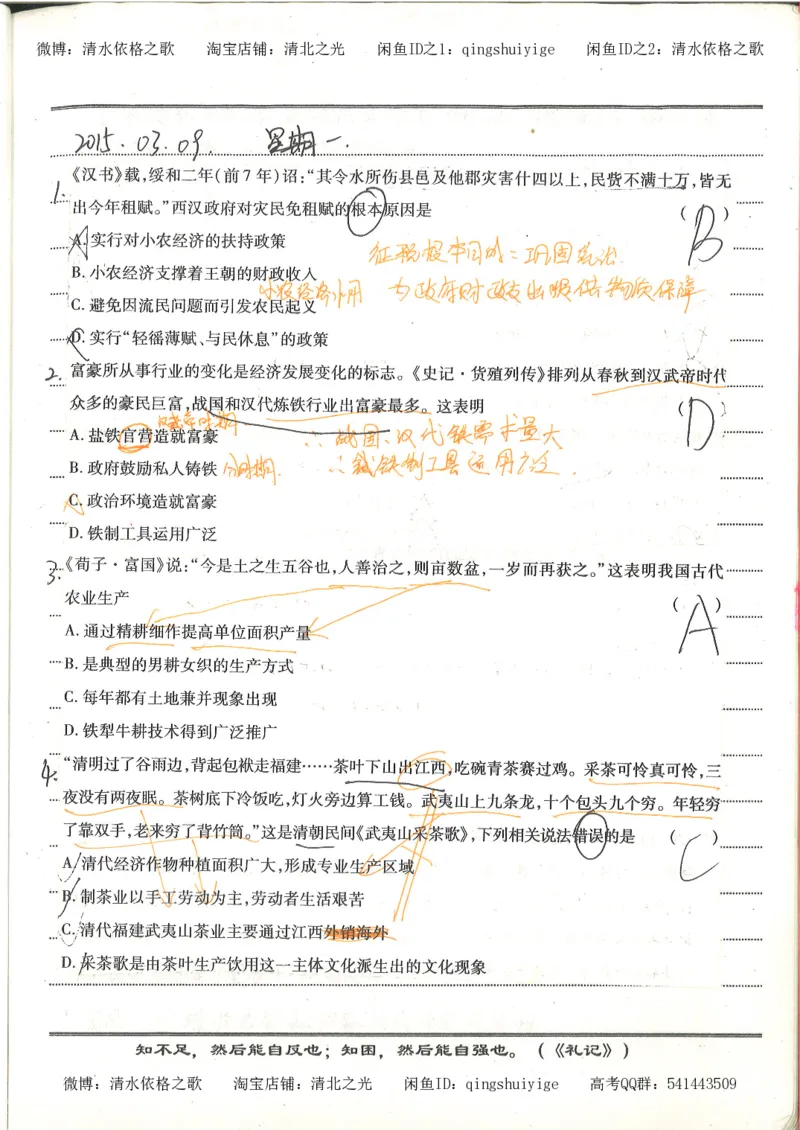 微博：清水依格之歌 淘宝店铺：清北之光 闲鱼ID之1：qingshuiyige 闲鱼ID之2：清水依格之歌
2015.03.09. 星期一.
1. 《汉书》载，绥和二年(前7年)诏：“其令水所伤县邑及他郡灾害什四以上，民赀不满十万，皆无
出今年租赋。”西汉政府对灾民免租赋的根本原因是 ( B )
A. 实行对小农经济的扶持政策
征税根本目的：巩固统治
B. 小农经济支撑着王朝的财政收入
小农经济作用 为政府财政支出提供物质保障
C. 避免因流民问题而引发农民起义
D. 实行“轻徭薄赋、与民休息”的政策
2. 富豪所从事行业的变化是经济发展变化的标志。《史记·货殖列传》排列从春秋到汉武帝时代
众多的豪民巨富，战国和汉代炼铁行业出富豪最多。这表明 ( D )
汉武帝时期
A. 盐铁官营造就富豪 ∴战国、汉代铁需求量大
B. 政府鼓励私人铸铁 分时期. ∴铁制工具运用广泛.
C. 政治环境造就富豪
D. 铁制工具运用广泛
3. 《荀子·富国》说：“今是土之生五谷也，人善治之，则亩数盆，一岁而再获之。”这表明我国古代
农业生产 ( A )
A. 通过精耕细作提高单位面积产量
B. 是典型的男耕女织的生产方式
C. 每年都有土地兼并现象出现
D. 铁犁牛耕技术得到广泛推广
4. “清明过了谷雨边，背起包袱走福建……茶叶下山出江西，吃碗青茶赛过鸡。采茶可怜真可怜，三
夜没有两夜眠。茶树底下冷饭吃，灯火旁边算工钱。武夷山上九条龙，十个包头九个穷。年轻穷
了靠双手，老来穷了背竹筒。”这是清朝民间《武夷山采茶歌》，下列相关说法错误的是 ( C )
A. 清代经济作物种植面积广大，形成专业生产区域
B. 制茶业以手工劳动为主，劳动者生活艰苦
C. 清代福建武夷山茶业主要通过江西外销海外
D. 采茶歌是由茶叶生产饮用这一主体文化派生出的文化现象
知不足，然后能自反也；知困，然后能自强也。（《礼记》）
微博：清水依格之歌 淘宝店铺：清北之光 闲鱼ID：qingshuiyige 高考QQ群：541443509